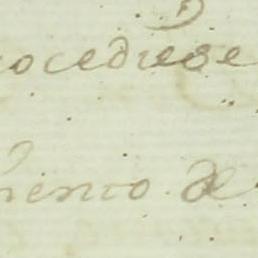 ocediese
niento de